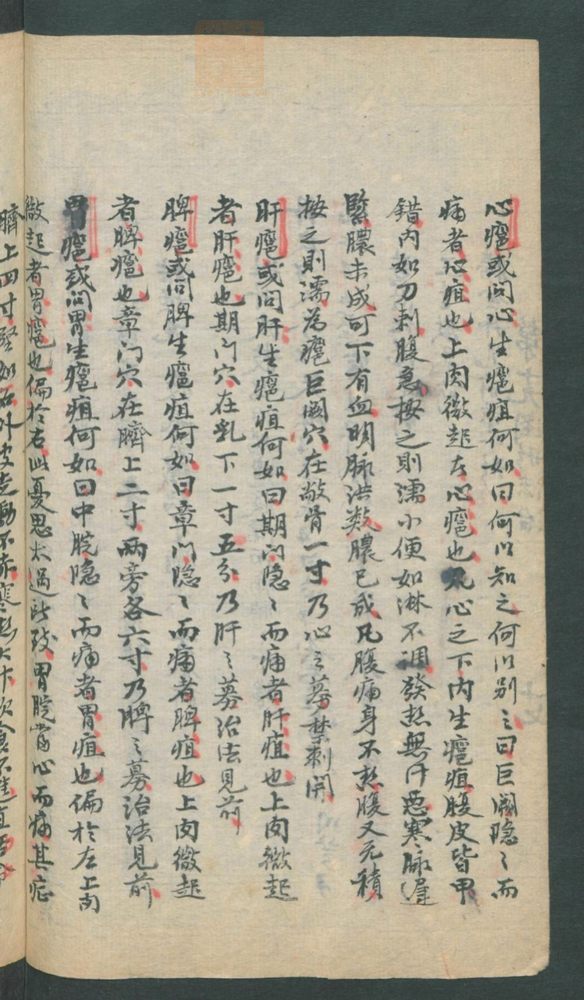 心癰或问心生癰疽何如曰何以知之何以别之曰巨阙隐〻而
痛者心疽也上肉微起者心癰也凡心之下内生癰疽腹皮皆甲
错内如刀刺腹急按之则濡小便如淋不调發热無汗恶寒脉遲
緊膿未成可下有血明脉洪数膿已成凡腹痛身不热腹又无積
按之则濡為癰巨阙穴在敲骨一寸乃心之募禁刺開
肝癰或问肝生癰疽何如曰期门隐〻而痛者肝疽也上肉微起
者肝癰也期门穴在乳下一寸五分乃肝之募治法見前
脾癰或问脾生癰疽何如曰章门隐〻而痛者脾疽也上肉微起
者脾癰也章门穴在臍上二寸两旁各六寸乃脾之募治法見前
胃癰或问胃生癰疽何如曰中脘隐〻而痛者胃疽也偏於左上肉
微起者胃癰也偏於右此憂思太過所致胃脘當心而痛其症
臍上四寸堅如石外皮走動不赤寒热大汗饮食不進